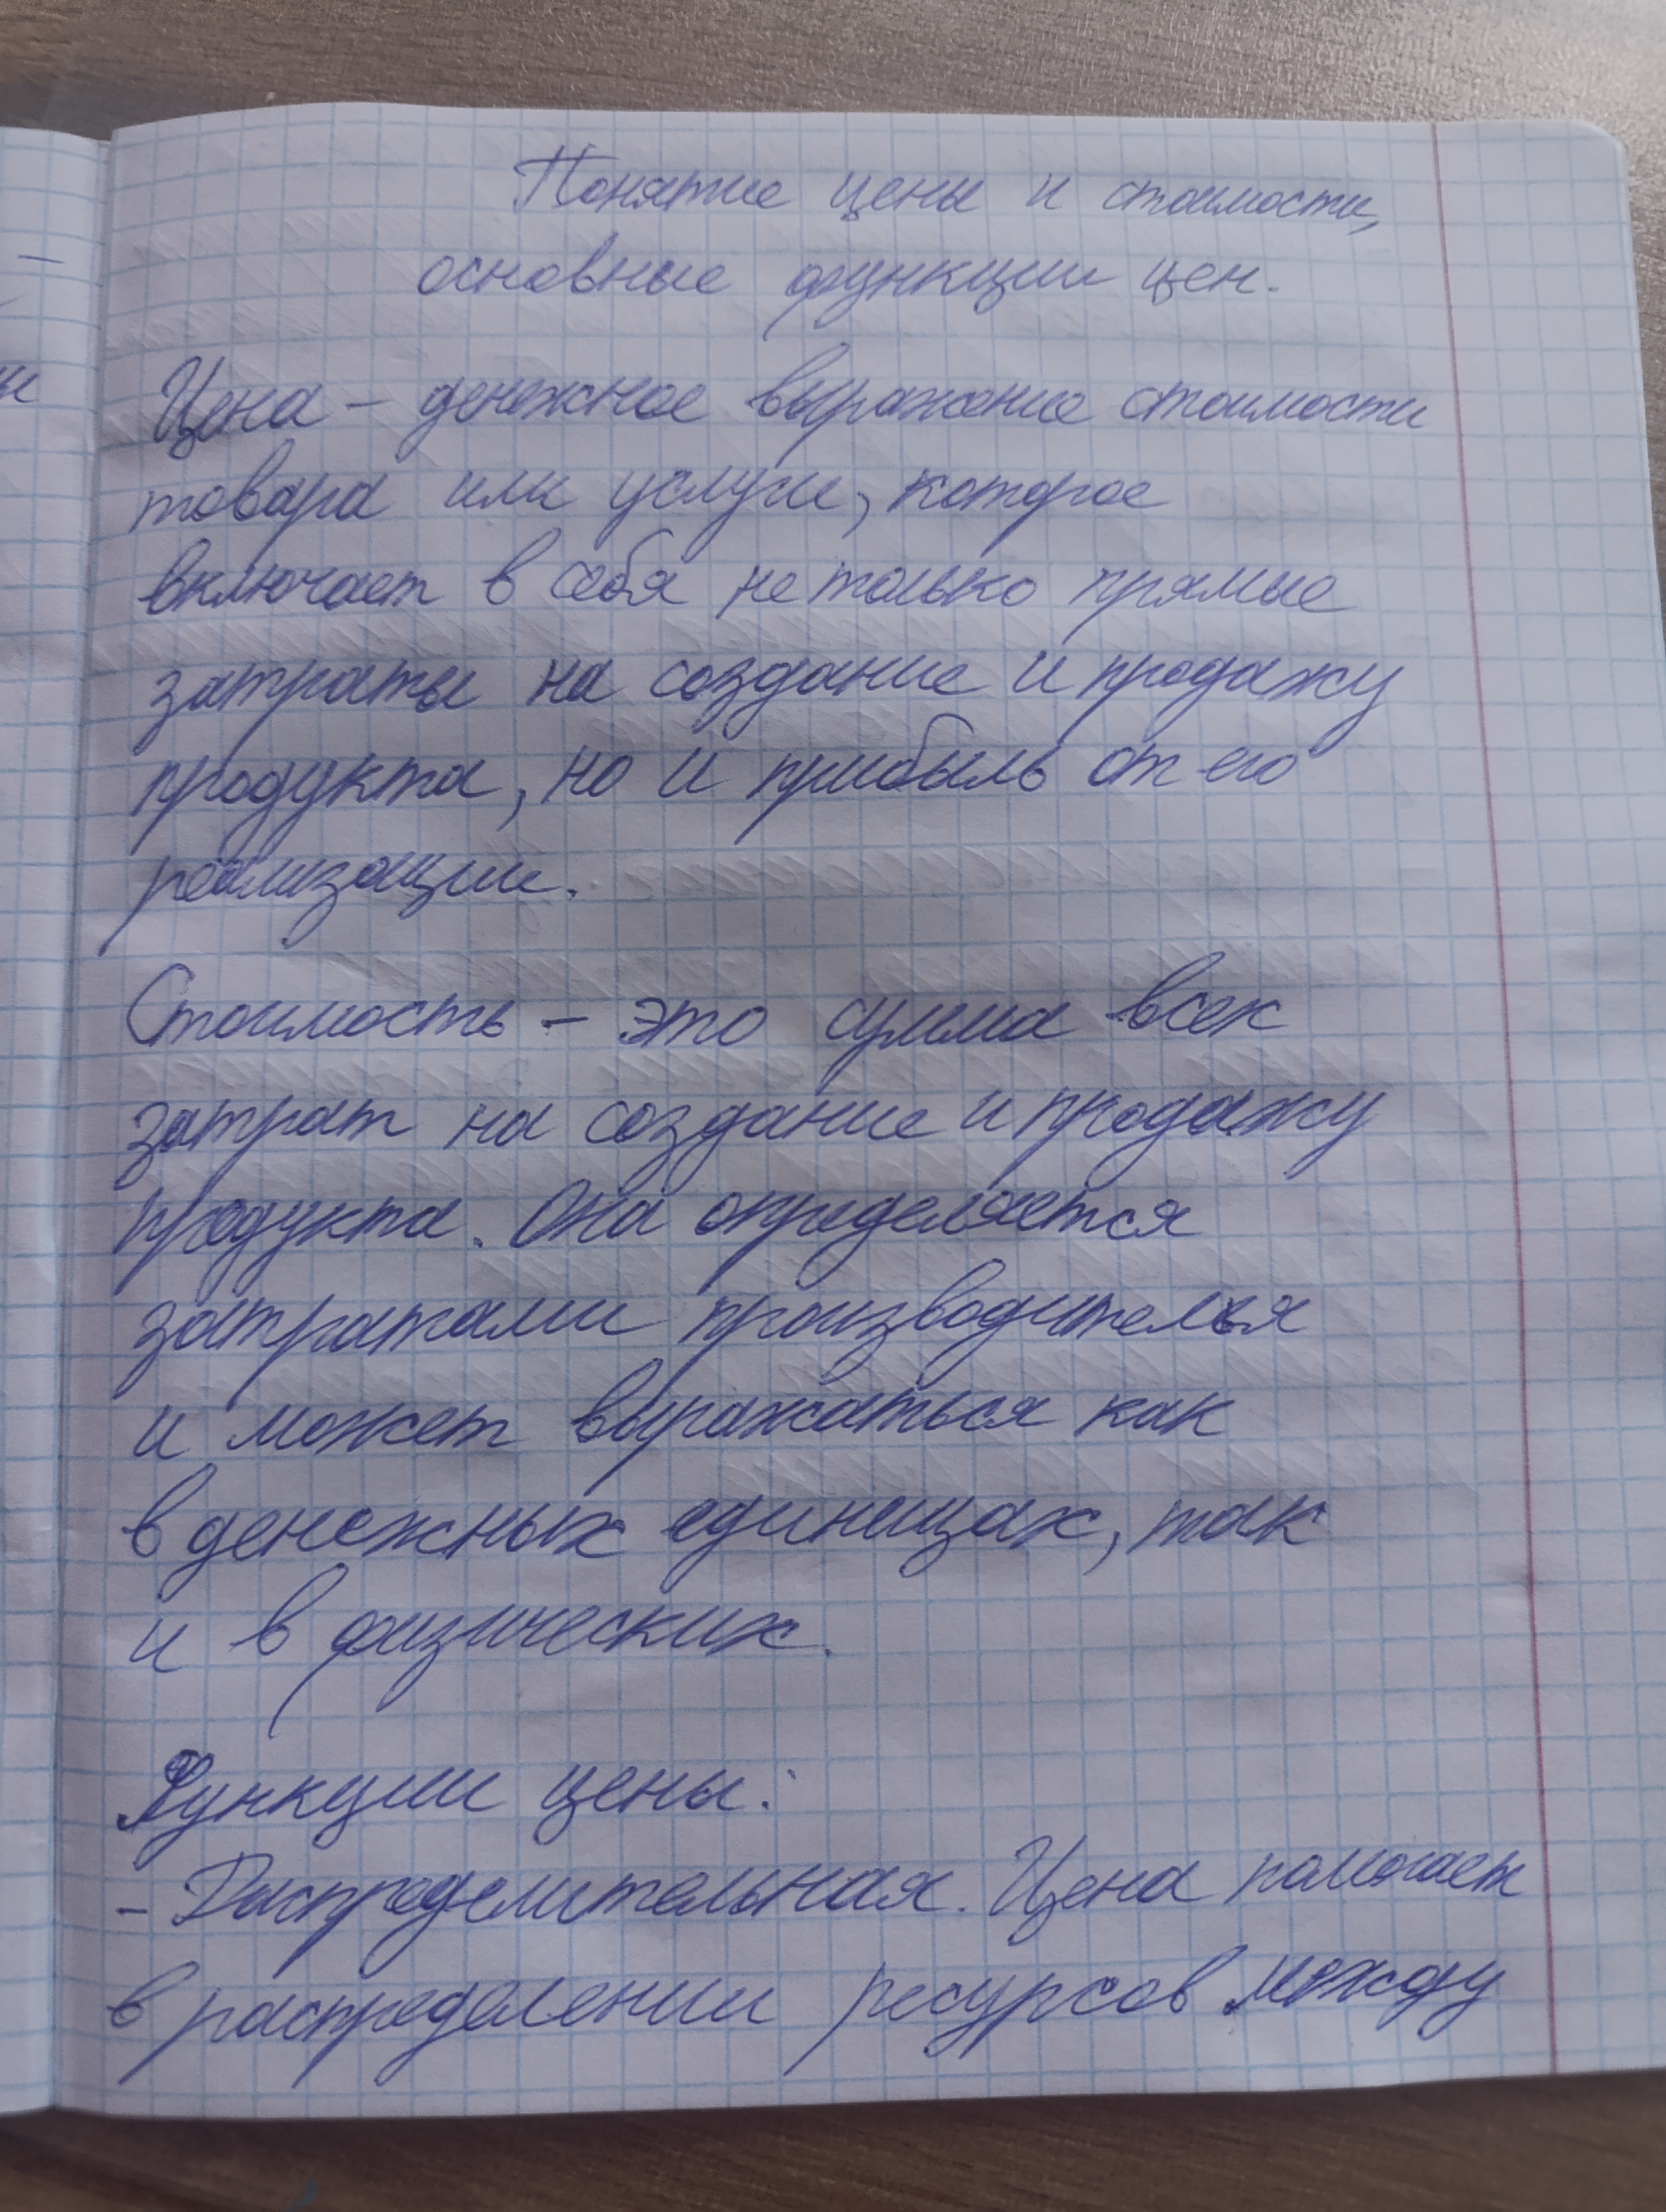 Понятие цены и стоимости,
основные функции цен.
Цена – денежное выражение стоимости
товара или услуги, которое
включает в себя не только прямые
затраты на создание и продажу
продукта, но и прибыль от его
реализации.
Стоимость – это сумма всех
затрат на создание и продажу
продукта. Она определяется
затратами производителя
и может выражаться как
в денежных единицах, так
и в физических.
Функции цены:
- Распределительная. Цена помогает
в распределении ресурсов между